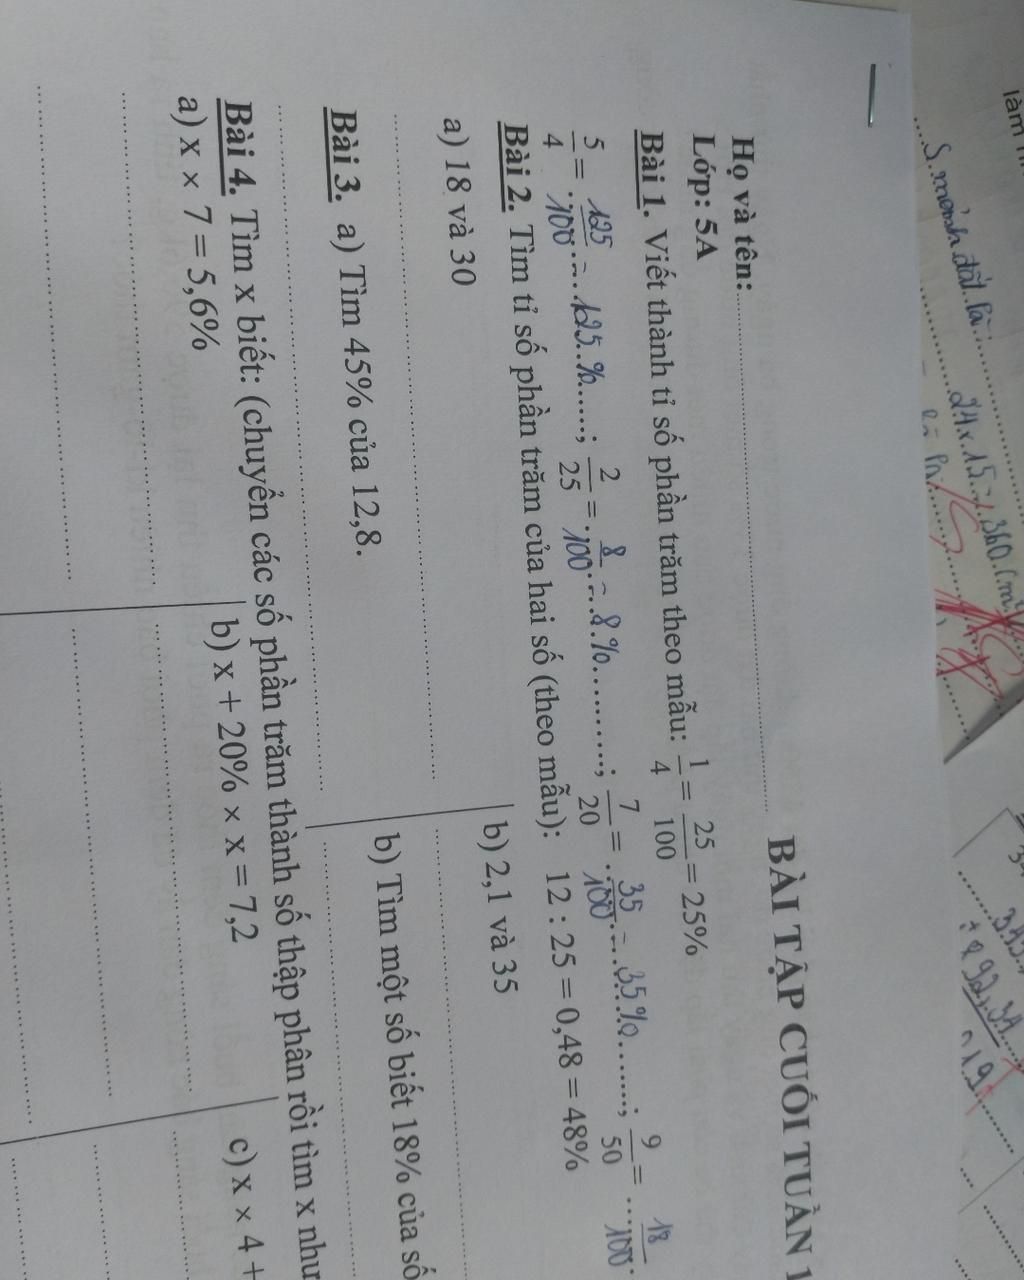 làm
S. mảnh đất là:
24 x 15 = 360 (m²
BÀI TẬP CUỐI TUẦN 1
Họ và tên:
Lớp: 5A
Bài 1. Viết thành tỉ số phần trăm theo mẫu: 1/4 = 25/100 = 25%
5/4 = 125/100 = 125 %; 2/25 = 8/100 = 8 %; 7/20 = 35/100 = 35%; 9/50 = 18/100
Bài 2. Tìm tỉ số phần trăm của hai số (theo mẫu): 12 : 25 = 0,48 = 48%
a) 18 và 30 b) 2,1 và 35
Bài 3. a) Tìm 45% của 12,8. b) Tìm một số biết 18% của số
Bài 4. Tìm x biết: (chuyển các số phần trăm thành số thập phân rồi tìm x như
a) x × 7 = 5,6% b) x + 20% × x = 7,2 c) x × 4 +